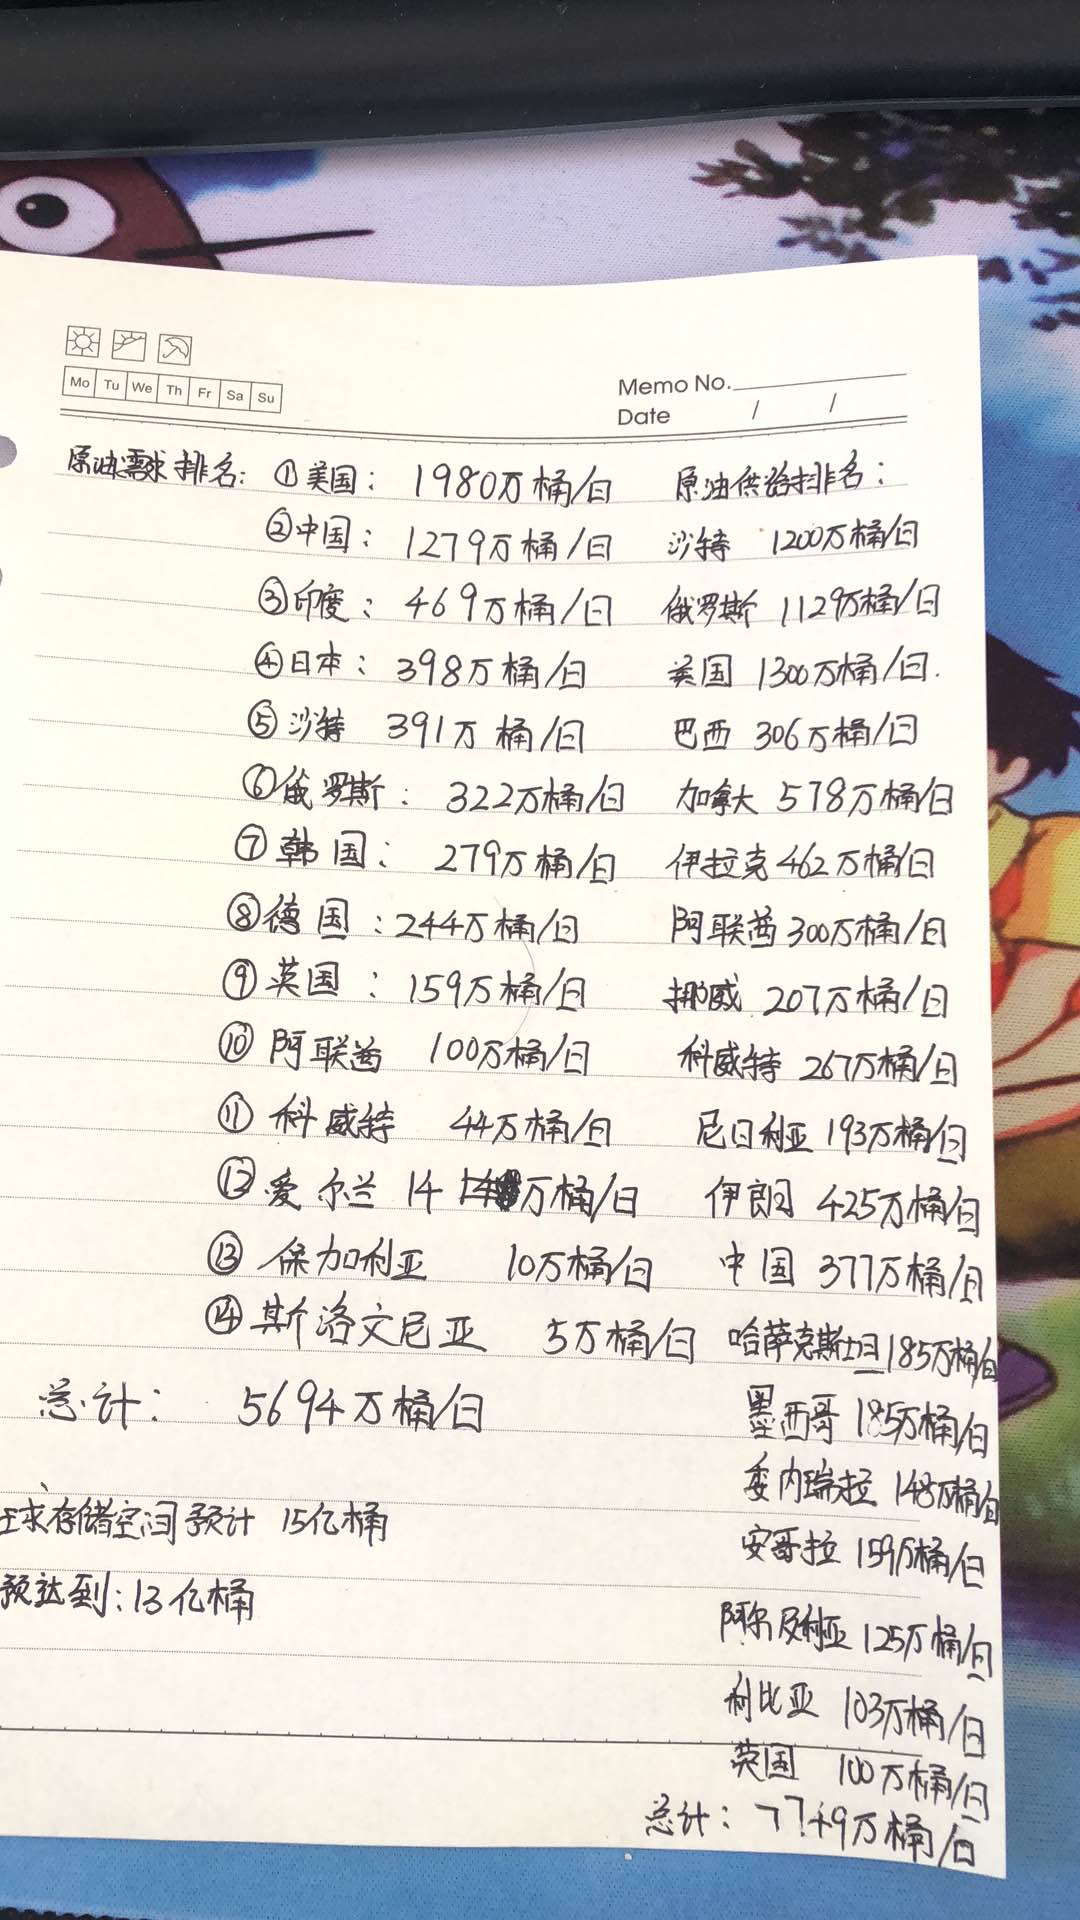 Mo Tu We Th Fr Sa Su
Memo No.
Date / /
原油需求排名: ①美国: 1980万桶/日
②中国: 1279万桶/日
③印度: 469万桶/日
④日本: 398万桶/日
⑤沙特 391万桶/日
⑥俄罗斯: 322万桶/日
⑦韩国: 279万桶/日
⑧德国: 244万桶/日
⑨英国: 159万桶/日
⑩阿联酋 100万桶/日
⑪科威特 44万桶/日
⑫爱尔兰 14万桶/日
⑬保加利亚 10万桶/日
⑭斯洛文尼亚 5万桶/日
总计: 5694万桶/日
求存储空间预计 15亿桶
预达到: 13亿桶
原油供给排名:
沙特 1200万桶/日
俄罗斯 1129万桶/日
美国 1300万桶/日.
巴西 306万桶/日
加拿大 578万桶/日
伊拉克 462万桶/日
阿联酋 300万桶/日
挪威 207万桶/日
科威特 267万桶/日
尼日利亚 193万桶/日
伊朗 425万桶/日
中国 377万桶/日
哈萨克斯坦 185万桶/日
墨西哥 185万桶/日
委内瑞拉 148万桶/日
安哥拉 159万桶/日
阿尔及利亚 125万桶/日
利比亚 103万桶/日
英国 100万桶/日
总计: 7749万桶/日